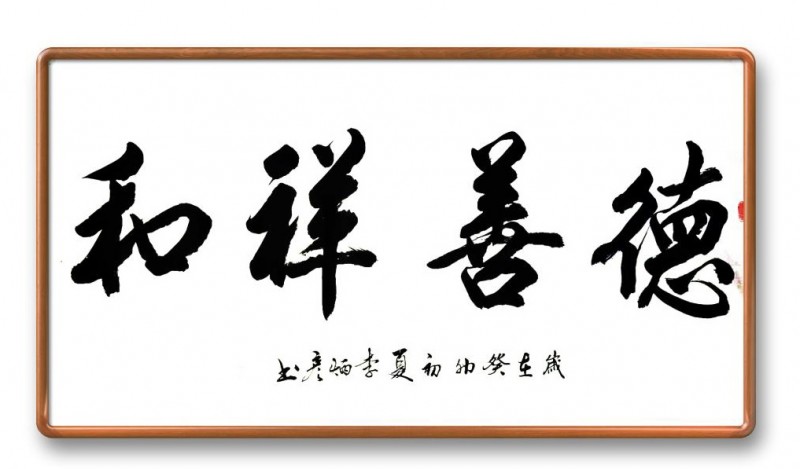 德善祥和
歲在癸卯初夏李炳彦书